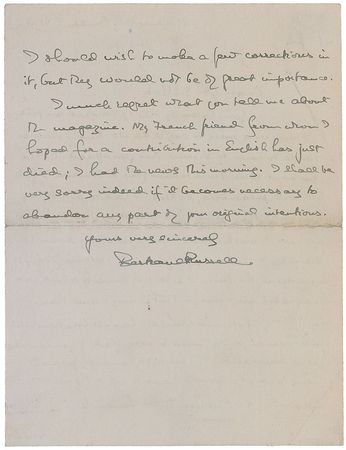 I should wish to make a few corrections in
it, but they would not be of great importance.
I much regret what you tell me about
the magazine. My French friend from whom I
hoped for a contribution in English has just
died; I had the news this morning. I shall be
very sorry indeed if it becomes necessary to
abandon any part of your original intentions.
Yours very sincerely
Bertrand Russell